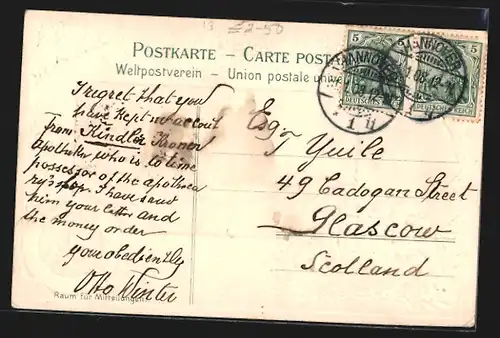 13 £2-50
POSTKARTE – CARTE POSTALE
Weltpostverein – Union postale universelle
5 5
HANNOVER
HANNOVER
08.12-1
* 1 u
DEUTSCHES REICH
I regret that you
have kept no accout
from Kindler
Apotheker who is to time
possessor of the apothea
ry's shop. I have send
him your letter and
the money order
your obediently
Otto Winter
Raum für Mitteilungen
Esq T Yuile
49 Cadogan Street
Glascow
Scolland